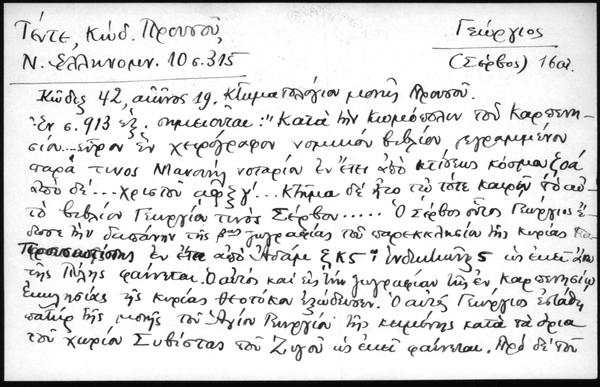 Τέντε, Κώδ. Προυσοῦ,
Ν. Ἑλληνομν. 10 σ. 315
Γεώργιος
(Σέρβος) 16 αἰ.
Κῶδιξ 42, αἰῶνος 19. Κτηματολόγιον μονῆς Προυσοῦ.
Ἐν σ. 913 ἑξ. σημειοῦται: "Κατὰ τὴν Κωμόπολιν τοῦ Καρπενη-
σίου... εὗρον ἐν χειρόγραφον νομικὸν βιβλίον γεγραμμένον
παρά τινος Μανουὴλ νοταρίου ἐν ἔτει ἀπὸ κτίσεως κόσμου ζοα
ἀπὸ δὲ ... Χριστοῦ αφξγ'... Κτῆμα δὲ ἦτο τῷ τότε καιρῷ τὸ αὐ-
τὸ βιβλίον Γεωργίου τινὸς Σέρβου..... Ὁ Σέρβος οὗτος Γεώργιος ἔ-
δωσε τὴν δαπάνην τῆς βας ζωγραφίας τοῦ παρεκκλησίου τῆς κυρίας
Προυσιωτίσσης ἐν ἔτει ἀπὸ Ἀδὰμ ζκ5 ἰνδικτιῶνος 5 ὡς ἐκεῖ ἄνω
τῆς Πύλης φαίνεται. Ὁ αὐτὸς καὶ εἰς τὴν ζωγραφίαν τῆς ἐν Καρπενησίῳ
ἐκκλησίας τῆς κυρίας Θεοτόκου ἐξώδευσεν. Ὁ αὐτὸς Γεώργιος ἐστάθη
πατὴρ τῆς μονῆς τοῦ Ἁγίου Γεωργίου τῆς κειμένης κατὰ τὰ ὅρια
τοῦ χωρίου Συβίστας τοῦ Ζυγοῦ ὡς ἐκεῖ φαίνεται. Πρὸ δὲ τοῦ